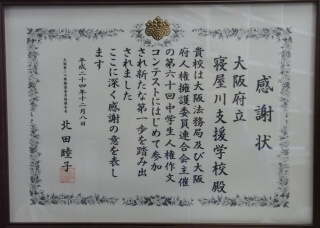 感謝状
大阪府立
寝屋川支援学校殿
貴校は大阪法務局及び大阪
府人権擁護委員連合会主催
の第六十回中学生人権作文
コンテストにはじめて参加
され新たな第一歩を踏み出
されました
ここに深く感謝の意を表し
ます
平成二十四年十二月八日
北田睦子